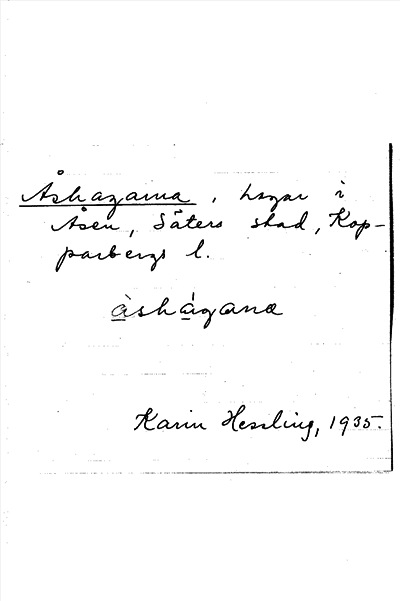 Åshagarna, hagar i
Åsen, Säters stad, Kop-
parbergs l.
àshágana
Karin Hessling, 1935.